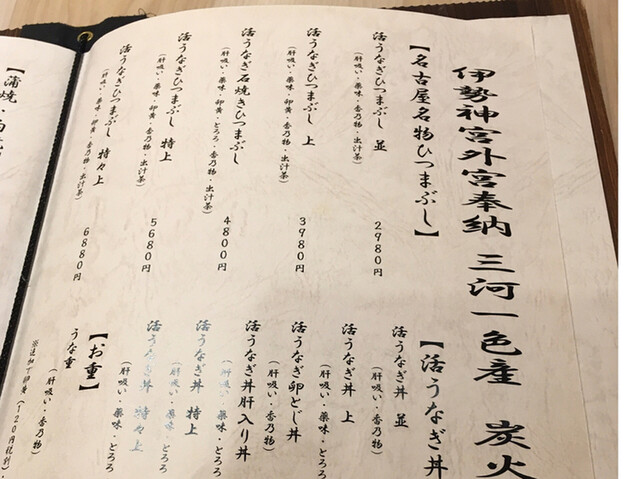 伊勢神宮外宮奉納 三河一色産 炭火
【名古屋名物ひつまぶし】
活うなぎひつまぶし 並
(肝吸い・薬味・香乃物・出汁茶)
2980円
活うなぎひつまぶし 上
(肝吸い・薬味・香乃物・出汁茶)
3980円
活うなぎ石焼きひつまぶし
(肝吸い・薬味・卵黄・とろろ・香乃物・出汁茶)
4800円
活うなぎひつまぶし 特上
(肝吸い・薬味・卵黄・香乃物・出汁茶)
5680円
活うなぎひつまぶし 特々上
(肝吸い・薬味・卵黄・香乃物・出汁茶)
6880円
【活うなぎ丼
活うなぎ丼 並
(肝吸い・香乃物)
活うなぎ丼 上
(肝吸い・薬味・とろろ
活うなぎ卵とじ丼
(肝吸い・香乃物)
活うなぎ丼肝入り丼
(肝吸い・薬味・とろろ
活うなぎ丼 特上
(肝吸い・薬味・とろろ
活うなぎ丼 特々上
(肝吸い・薬味・とろろ
【お重】
うな重
(肝吸い・香乃物)
※追加で卵黄(120円税別)・
【蒲焼・白